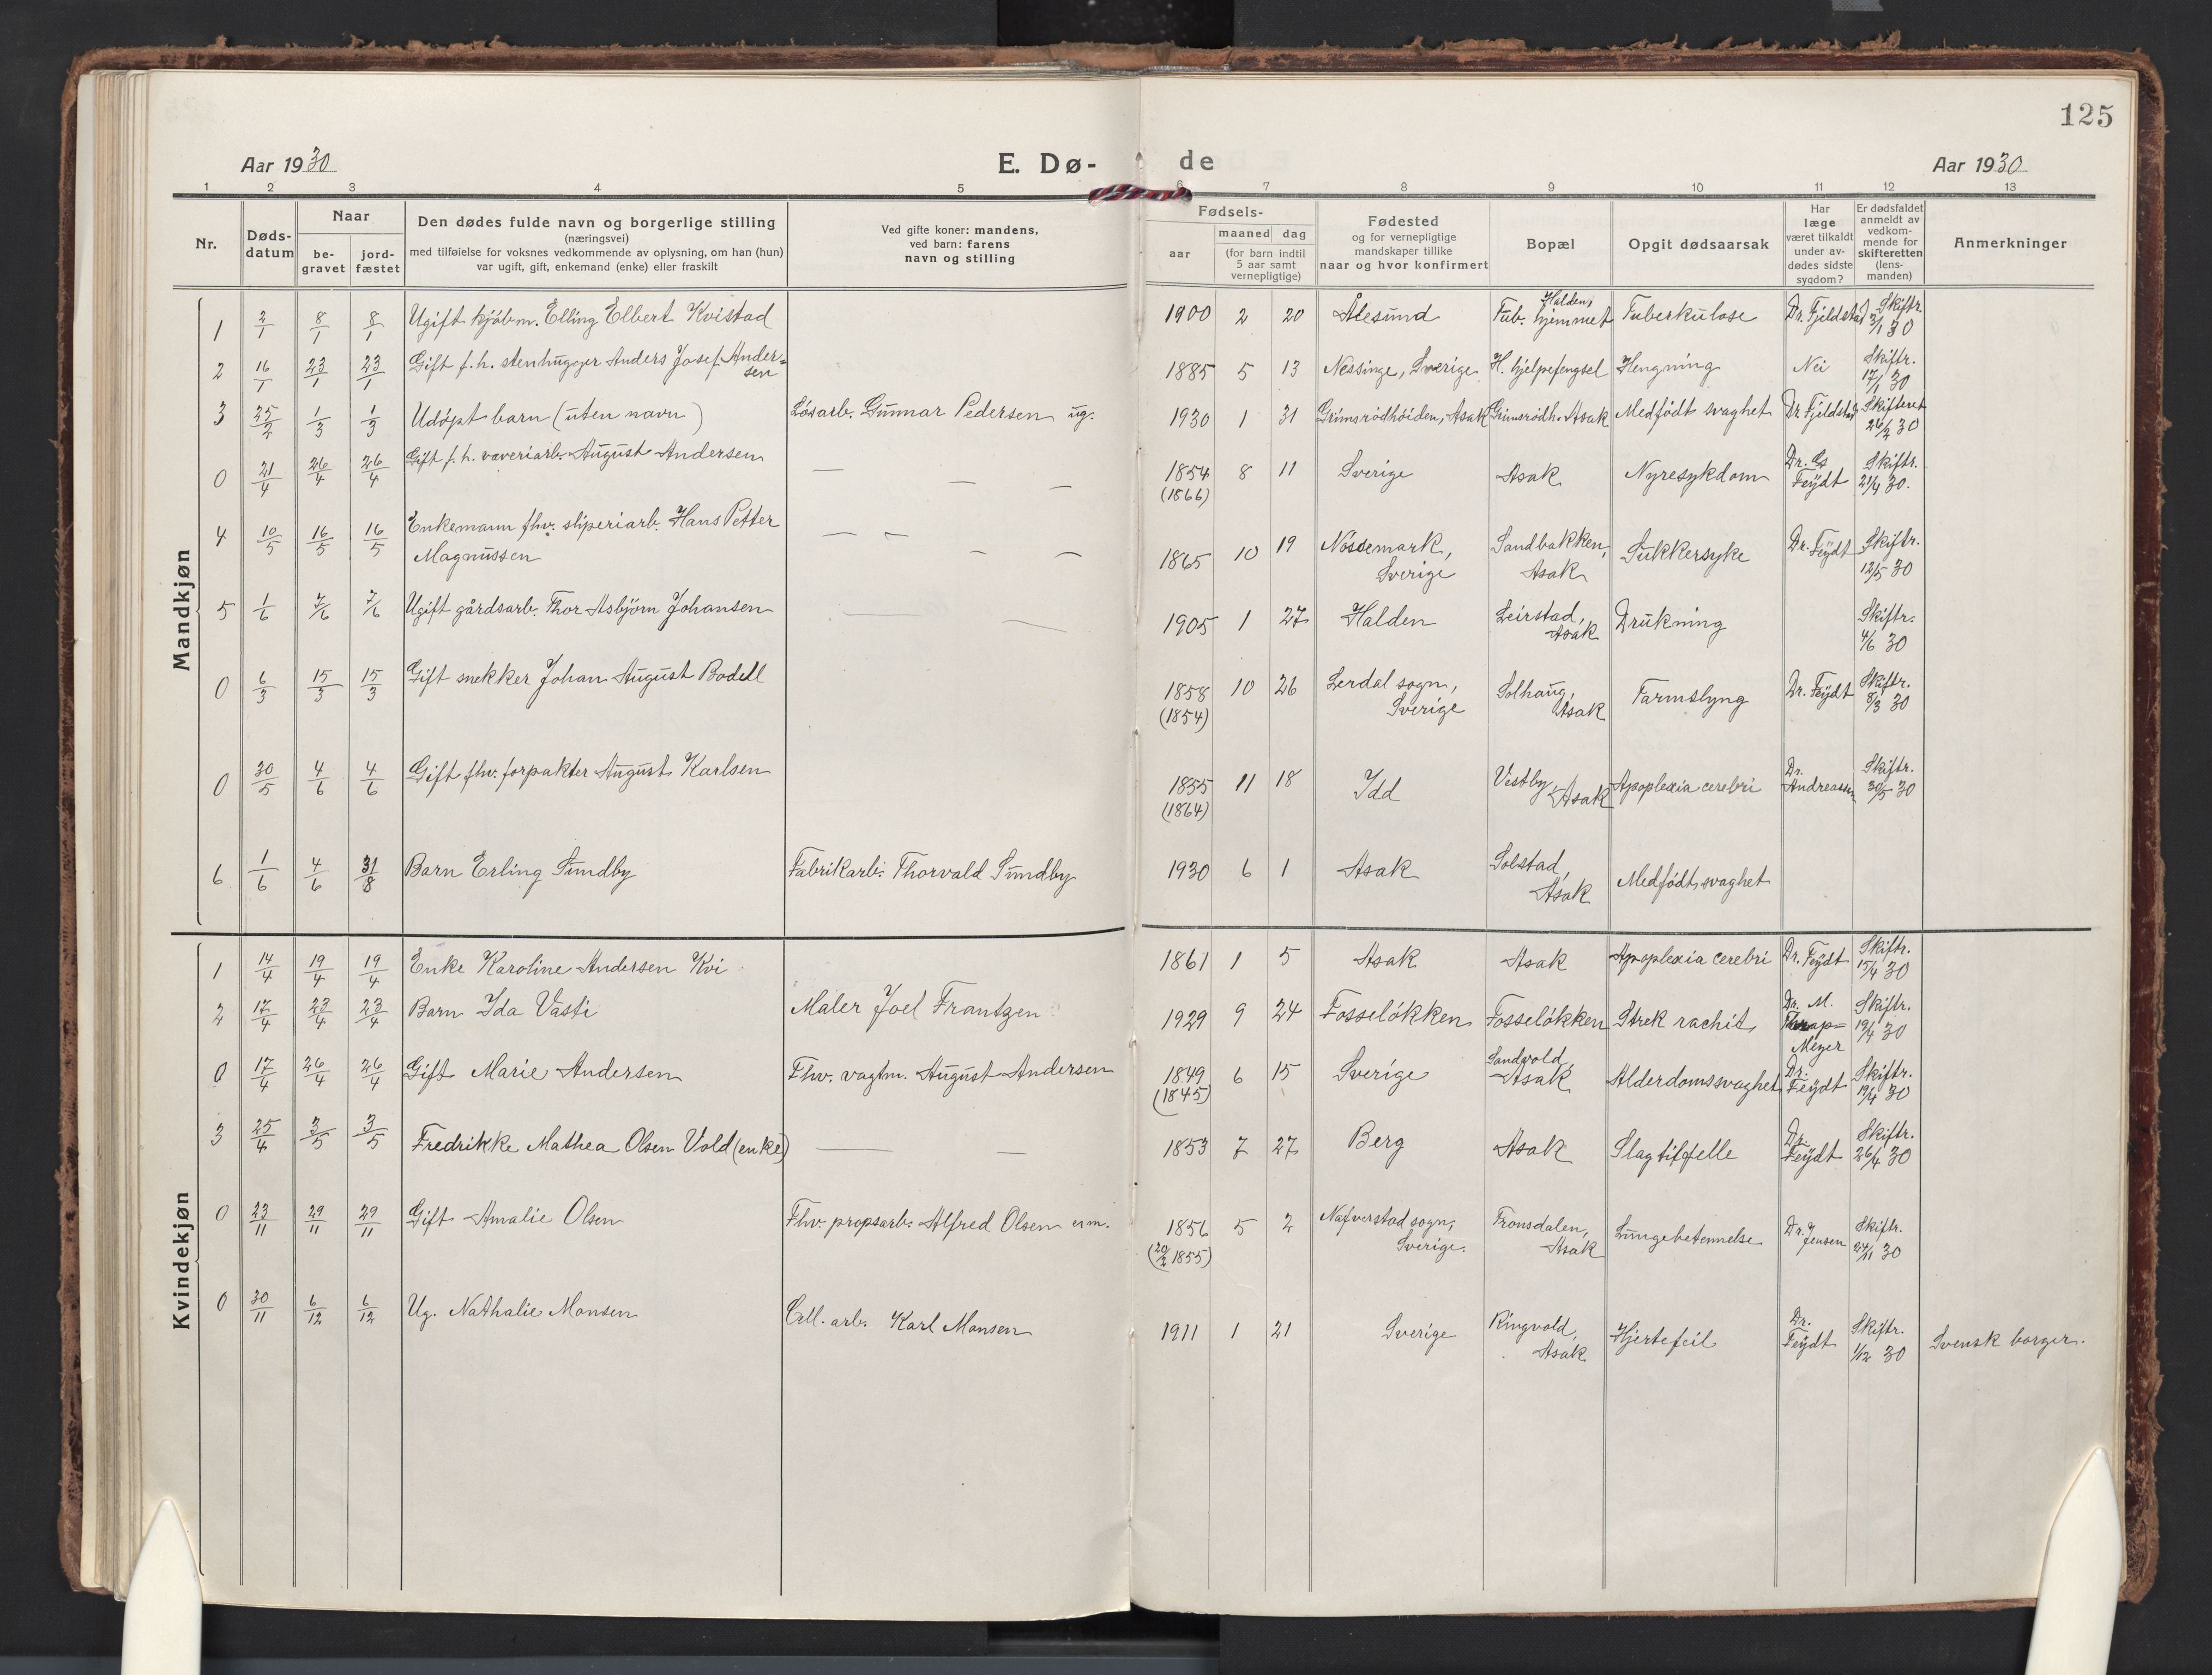 125
Aar 1930 E. Dø- de Aar 1930
1 2 3 4 5 6 7 8 9 10 11 12 13
Nr.
Døds-
datum
Naar
be-
gravet
jord-
fæstet
Den dødes fulde navn og borgerlige stilling
(næringsvei)
med tilføielse for voksnes vedkommende av oplysning, om han (hun)
var ugift, gift, enkemand (enke) eller fraskilt
Ved gifte koner: mandens,
ved barn: farens
navn og stilling
Fødsels-
aar
maaned dag
(for barn indtil
5 aar samt
vernepligtige)
Fødested
og for vernepligtige
mandskaper tillike
naar og hvor konfirmert
Bopæl
Opgit dødsaarsak
Har
læge
været tilkaldt
under av-
dødes sidste
sygdom?
Er dødsfaldet
anmeldt av
vedkom-
mende for
skifteretten
(lens-
manden)
Anmerkninger
Mandkjøn
1 2/1 8/1 8/1 Ugift kjöbm. Elling Elbert Kvistad 1900 2 20 Ålesund Halden,
Tub. hjemmet Tuberkulose Dr. Fjeldstad Skiftr.
3/1 30
2 16/1 23/1 23/1 Gift f. h. stenhugger Anders Josef Ander-
sen 1885 5 13 Nessinge, Sverige H. hjelpefengsel Hengning Nei Skiftr.
17/1 30
3 25/2 1/3 1/3 Udöpt barn (uten navn) Lösarb. Gunnar Pedersen ug. 1930 1 31 Grimsrödhöiden, Asak Grimsrödh. Asak Medfödt svaghet Dr Fjeldstad Skifteret
26/2 30
0 21/4 26/4 26/4 Gift f. h. væveriarb. August Andersen — — — 1854
(1866) 8 11 Sverige Asak Nyresykdom Dr.
Feydt Skiftr.
21/4 30.
4 10/5 16/5 16/5 Enkemann fhv. sliperiarb. Hans Petter
Magnussen — — — — 1865 10 19 Nössemark,
Sverige Sandbakken,
Asak Sukkersyke Dr. Feydt Skiftr.
12/5 30
5 1/6 7/6 7/6 Ugift gårdsarb. Thor Asbjörn Johansen — — 1905 1 27 Halden Leirstad,
Asak Drukning Skiftr.
4/6 30
0 6/3 15/3 15/3 Gift snekker Johan August Bodell 1858
(1854) 10 26 Lerdal sogn,
Sverige Solhaug,
Asak Tarmslyng Dr. Feydt Skiftr.
8/3 30
0 30/5 4/6 4/6 Gift fhv. forpakter August Karlsen 1855
(1864) 11 18 Idd Vestby
Asak Apoplexia cerebri Dr.
Andreassen Skiftr.
30/5 30
6 1/6 4/6 31/8 Barn Erling Sundby Fabrikarb. Thorvald Sundby 1930 6 1 Asak Solstad,
Asak Medfödt svaghet
Kvindekjøn
1 14/4 19/4 19/4 Enke Karoline Andersen Kvi 1861 1 5 Asak Asak Apoplexia cerebri Dr. Feydt Skiftr.
15/4 30
2 17/4 23/4 23/4 Barn Ida Vasti Maler Joel Frantzen 1929 9 24 Fosselökken Fosselökken Strek rachit. Dr. M.
Thrap-
Meyer Skiftr.
19/4 30
0 17/4 26/4 26/4 Gift Marie Andersen Fhv. vagtm. August Andersen 1849
(1845) 6 15 Sverige Sandvold,
Asak Alderdomssvaghet Dr.
Feydt Skiftr.
19/4 30
3 25/4 3/5 3/5 Fredrikke Mathea Olsen Vold (enke) — — 1853 7 27 Berg Asak Slagtilfelle Dr.
Feydt Skiftr.
26/4 30
0 23/11 29/11 29/11 Gift Amalie Olsen Fhv. propsarb. Alfred Olsen 1856
(20/2 1855) 5 2 Nafverstad sogn,
Sverige. Tronsdalen,
Asak Lungebetennelse Dr.
Jensen Skiftr.
24/11 30
0 30/11 6/12 6/12 Ug. Nathalie Monsen Cell. arb. Karl Monsen 1911 1 21 Sverige Ringvold,
Asak Hjertefeil Dr.
Feydt Skiftr.
1/12 30 Svensk borger.